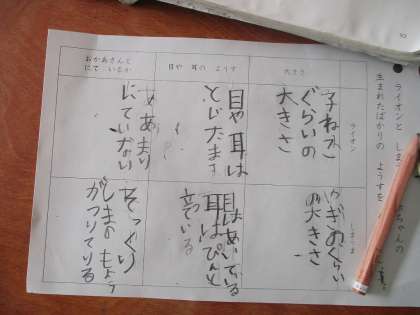 ライオンと しま
ちゃんの
生まれたばかりの ようすを
大きさ
目や 耳の ようす
おかあさんと
にて いるか
ライオン
子ねこ
ぐらいの
大きさ
目や耳は
とじたまま
あまり
にていない
しまうま
やぎのぐらい
の大きさ
目はあいている
耳はぴんと
立っている
そっくり
しまのもよう
がついている